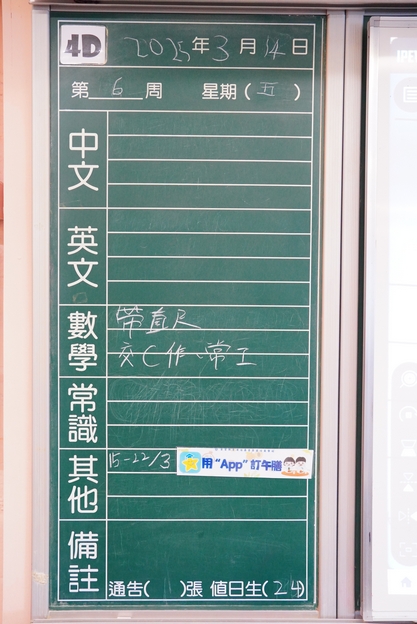 4D 2025年3月14日
第6周 星期(五)
中文
英文
數學 帶直尺
交C作、常工
常識
其他 15-22/3 用“App”訂午膳
備註
通告( )張 值日生(24)